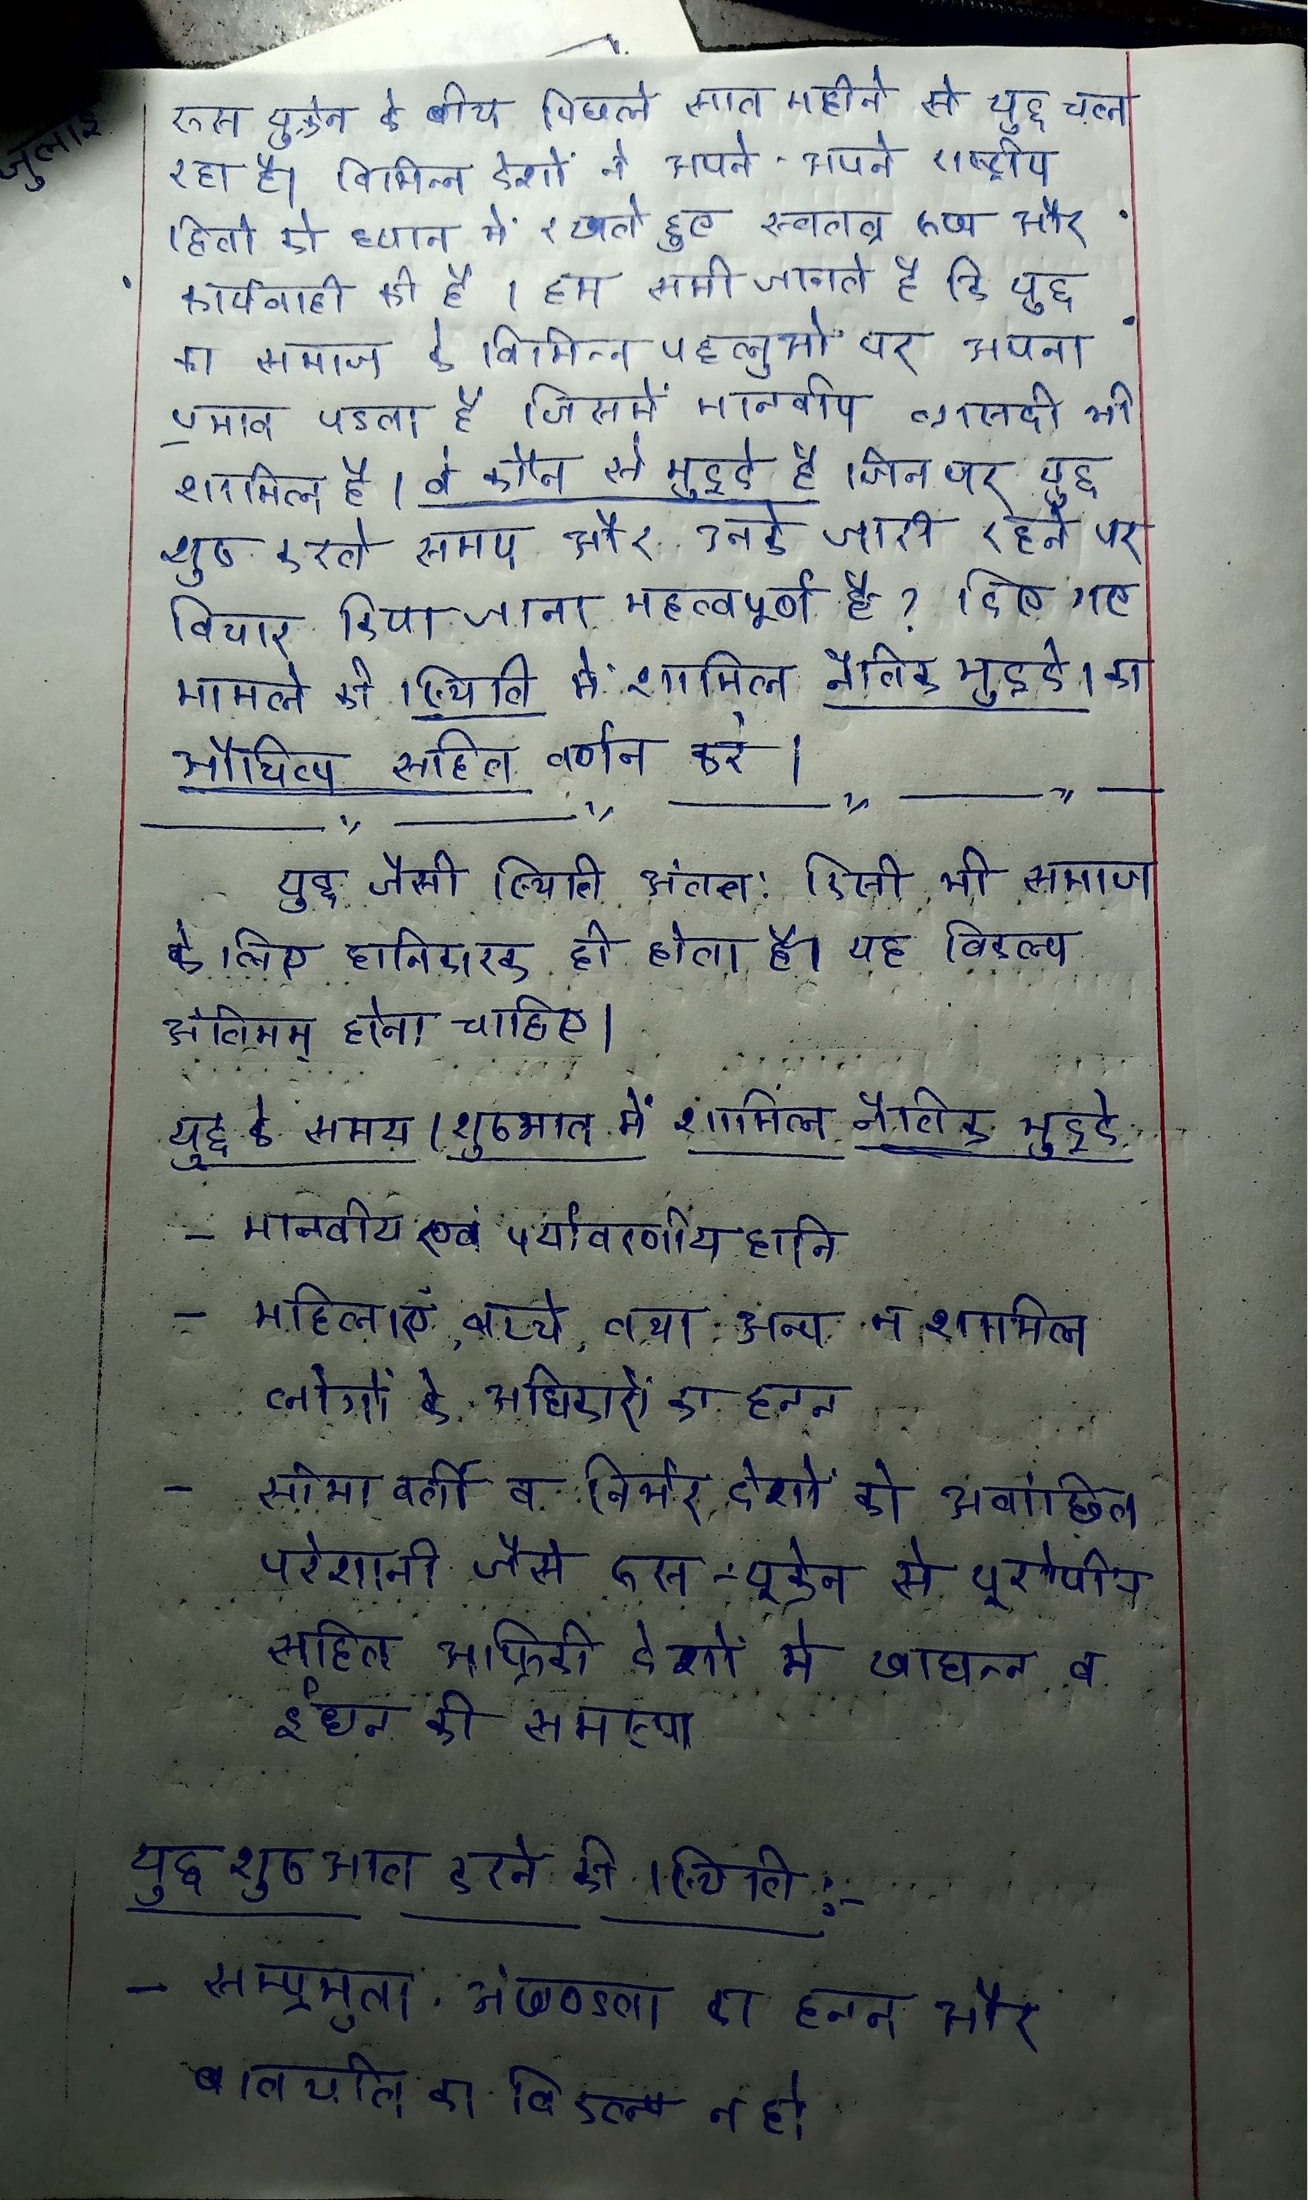 जुलाई
रूस युक्रेन के बीच पिछले सात महीने से युद्ध चल
रहा है। विभिन्न देशों ने अपने-अपने राष्ट्रीय
हितो को ध्यान में रखते हुए स्वतंत्र रूप और
कार्यवाही की है। हम सभी जानते है कि युद्ध
का समाज के विभिन्न पहलुओं पर अपना
प्रभाव पडता है जिसमें मानवीय त्रासदी भी
शामिल है। वे कौन से मुद्दे है जिन पर युद्ध
शुरू करते समय और उनके जारी रहने पर
विचार किया जाना महत्वपूर्ण है? दिए गए
मामले की स्थिति में शामिल नैतिक मुद्दे। का
औचित्य सहित वर्णन करे।
युद्ध जैसी स्थिति अंततः किसी भी समाज
के लिए हानिकारक ही होता है। यह विकल्प
अंतिमम् होना चाहिए।
युद्ध के समय/शुरूआत में शामिल नैतिक मुद्दे
- मानवीय एवं पर्यावरणीय हानि
- महिलाएं, बच्चे, तथा अन्य न शामिल
लोगों के अधिकारों का हनन
- सीमा वर्ती व निर्भर देशों को अवांछित
परेशानी जैसे रूस-यूक्रेन से यूरोपीय
सहित अफ्रिकी देशों मे खाद्यन्न व
ईंधन की समस्या
युद्ध शुरूआत करने की स्थिति :-
- सम्प्रभुता. अंखण्डता का हनन और
बातचीत का विकल्प न हो